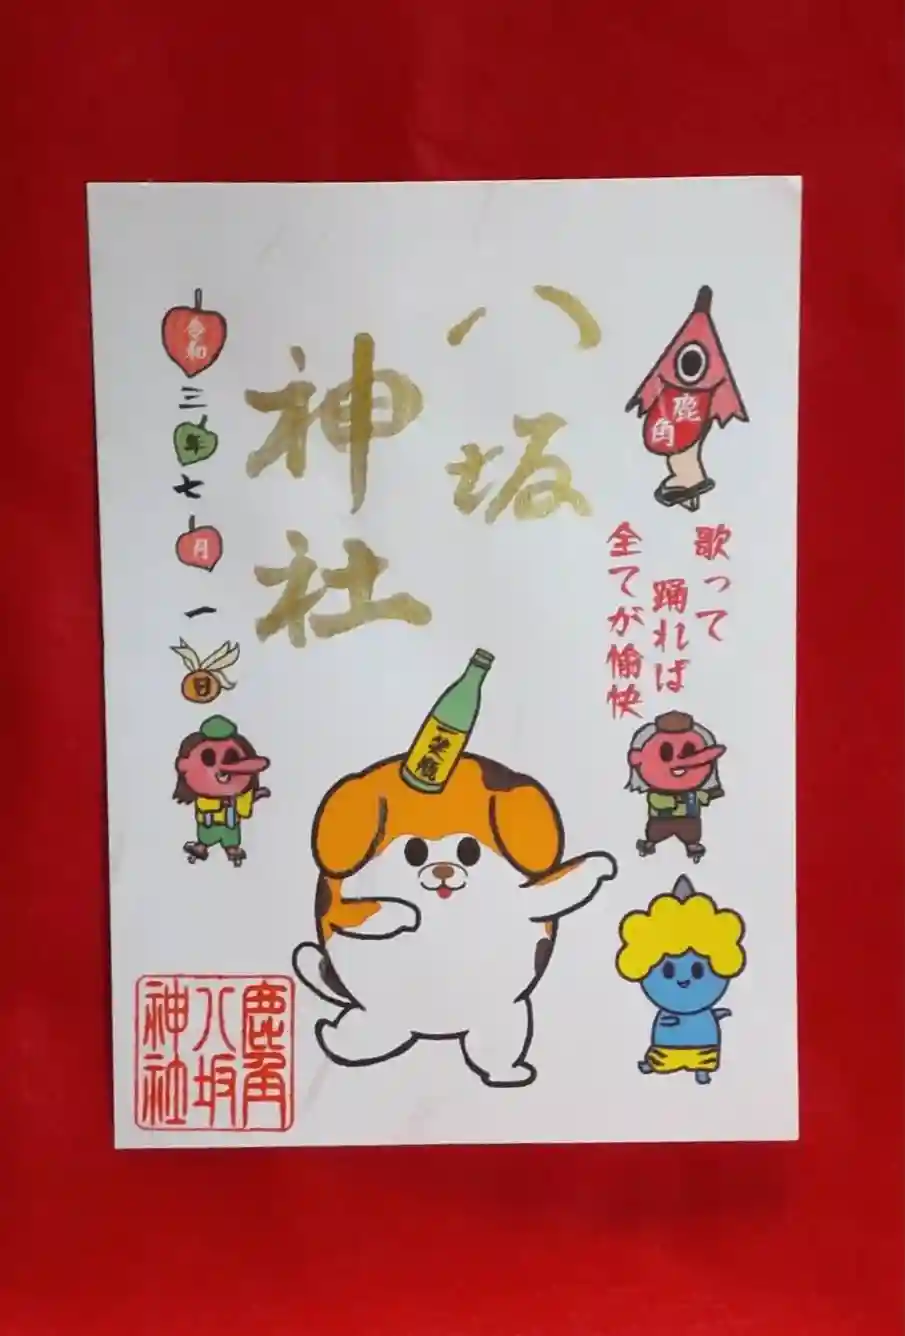 鹿角
歌って
踊れば
全てが愉快
八坂
神社
令和三年七月一日
笑
鹿角
八坂
神社